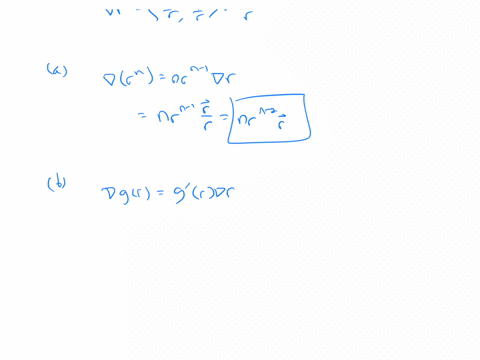 (a) ∇(rⁿ) = nrⁿ⁻¹ ∇r
= nrⁿ⁻¹ r⃗/r = nrⁿ⁻² r⃗
(b) ∇g(r) = g′(r)∇r